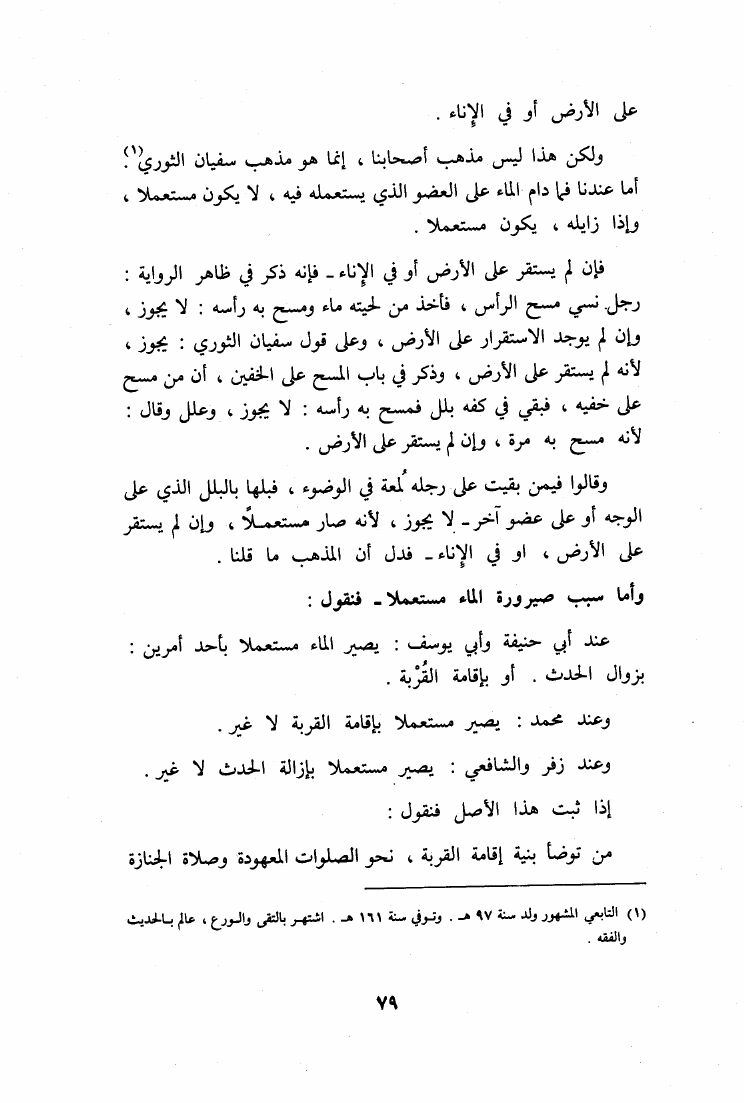 على الأرض أو في الإناء .
ولكن هذا ليس مذهب أصحابنا ، إنما هو مذهب سفيان الثوري(١) .
أما عندنا فما دام الماء على العضو الذي يستعمله فيه ، لا يكون مستعملا ،
وإذا زايله ، يكون مستعملا .
فإن لم يستقر على الأرض أو في الإناء ـ فإنه ذكر في ظاهر الرواية :
رجل نسي مسح الرأس ، فأخذ من لحيته ماء ومسح به رأسه : لا يجوز ،
وإن لم يوجد الاستقرار على الأرض ، وعلى قول سفيان الثوري : يجوز ،
لأنه لم يستقر على الأرض ، وذكر في باب المسح على الخفين ، أن من مسح
على خفيه ، فبقي في كفه بلل فمسح به رأسه : لا يجوز ، وعلل وقال :
لأنه مسح به مرة ، وإن لم يستقر على الأرض .
وقالوا فيمن بقيت على رجله لُمعة في الوضوء ، فبلها بالبلل الذي على
الوجه أو على عضو آخر ـ لا يجوز ، لأنه صار مستعمـلاً ، وإن لم يستقر
على الأرض ، او في الإناء ـ فدل أن المذهب ما قلنا .
وأما سبب صيرورة الماء مستعملا ـ فنقول :
عند أبي حنيفة وأبي يوسف : يصير الماء مستعملا بأحد أمرين :
بزوال الحدث . أو بإقامة القُرْبة .
وعند محمد : يصير مستعملا بإقامة القربة لا غير .
وعند زفر والشافعي : يصير مستعملا بإزالة الحدث لا غير .
إذا ثبت هذا الأصل فنقول :
من توضأ بنية إقامة القربة ، نحو الصلوات المعهودة وصلاة الجنازة
(١) التابعي المشهور ولد سنة ٩٧ هـ . وتـوفي سنة ١٦١ هـ . اشتهـر بالتقى والـورع ، عالم بـالحديث
والفقه .
٧٩